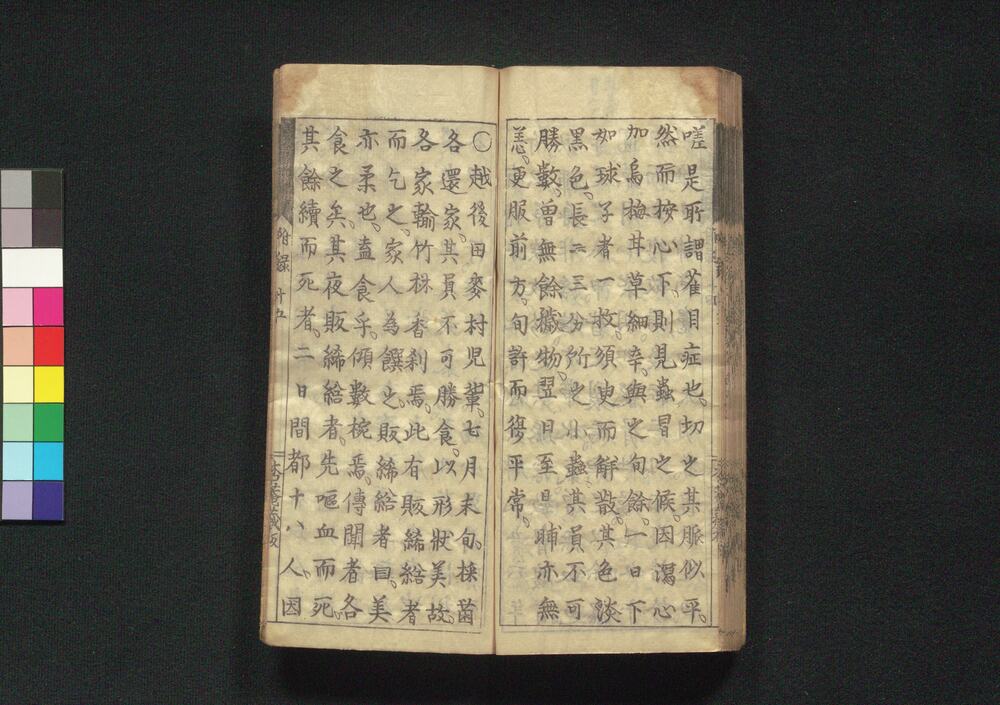 嗟是所謂雀目症也。切之其脈似平。
然而按心下。則見蟲冒之候。因瀉心
加烏梅甘草細辛。與之旬餘。一日下
如球子者一枚。須臾而解散。其色淡
黑色。長二三分所之小蟲。其員不可
勝數。曾無餘穢物。翌日至晡亦無
恙。更服前方。旬許而復平常。
〇越後田麥村児輩。七月末旬。採菌
各還家。其員不可勝食。以形狀美故。
各家輸竹林香剎焉。此有販締綌者
而乞之。家人為饌之。販締綌者曰。美
亦柔也。盍食乎。傾數椀焉。傳聞者各
食之矣。其夜販締綌者。先嘔血而死。
其餘續而死者。二日間都十八人。因
附録 廿五